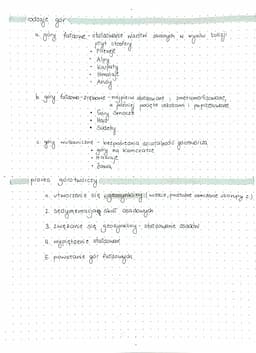 rodzaje gór
a. góry fałdowe - sfałdowanie warstw skalnych w wyniku kolizji płyt litosfery
• Pireneje
• Alpy
• Karpaty
• Himalaje
• Andy
b. góry fałdowo-zrębowe - najpierw sfałdowane i zmetamorfizowane,
a później pocięte uskokami i
• Góry
• Harz
• Sudety
c. góry wulkaniczne - bezpośrednia działalność górotwórcza
• góry na Kamczatce
• Hawaje
• Jawa
górotwórczy
1. utworzenie się geosynkliny (
2. sedymentacja skał osadowych
3. zwężanie się geosynkliny - sfałdowanie osadów
4. wypiętrzenie sfałdowań
5. powstanie gór fałdowych